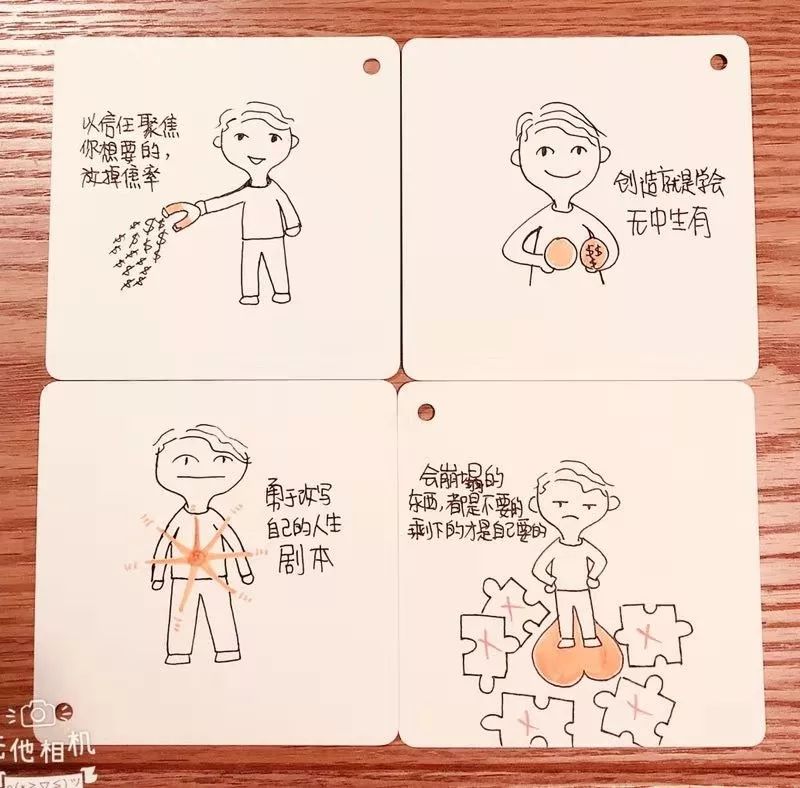 以信任聚焦
你想要的，
放掉焦率
创造就是学会
无中生有
勇于改写
自己的人生
剧本
会崩塌的
东西，都是不要的
剩下的才是自己要的
$$
$
他相机